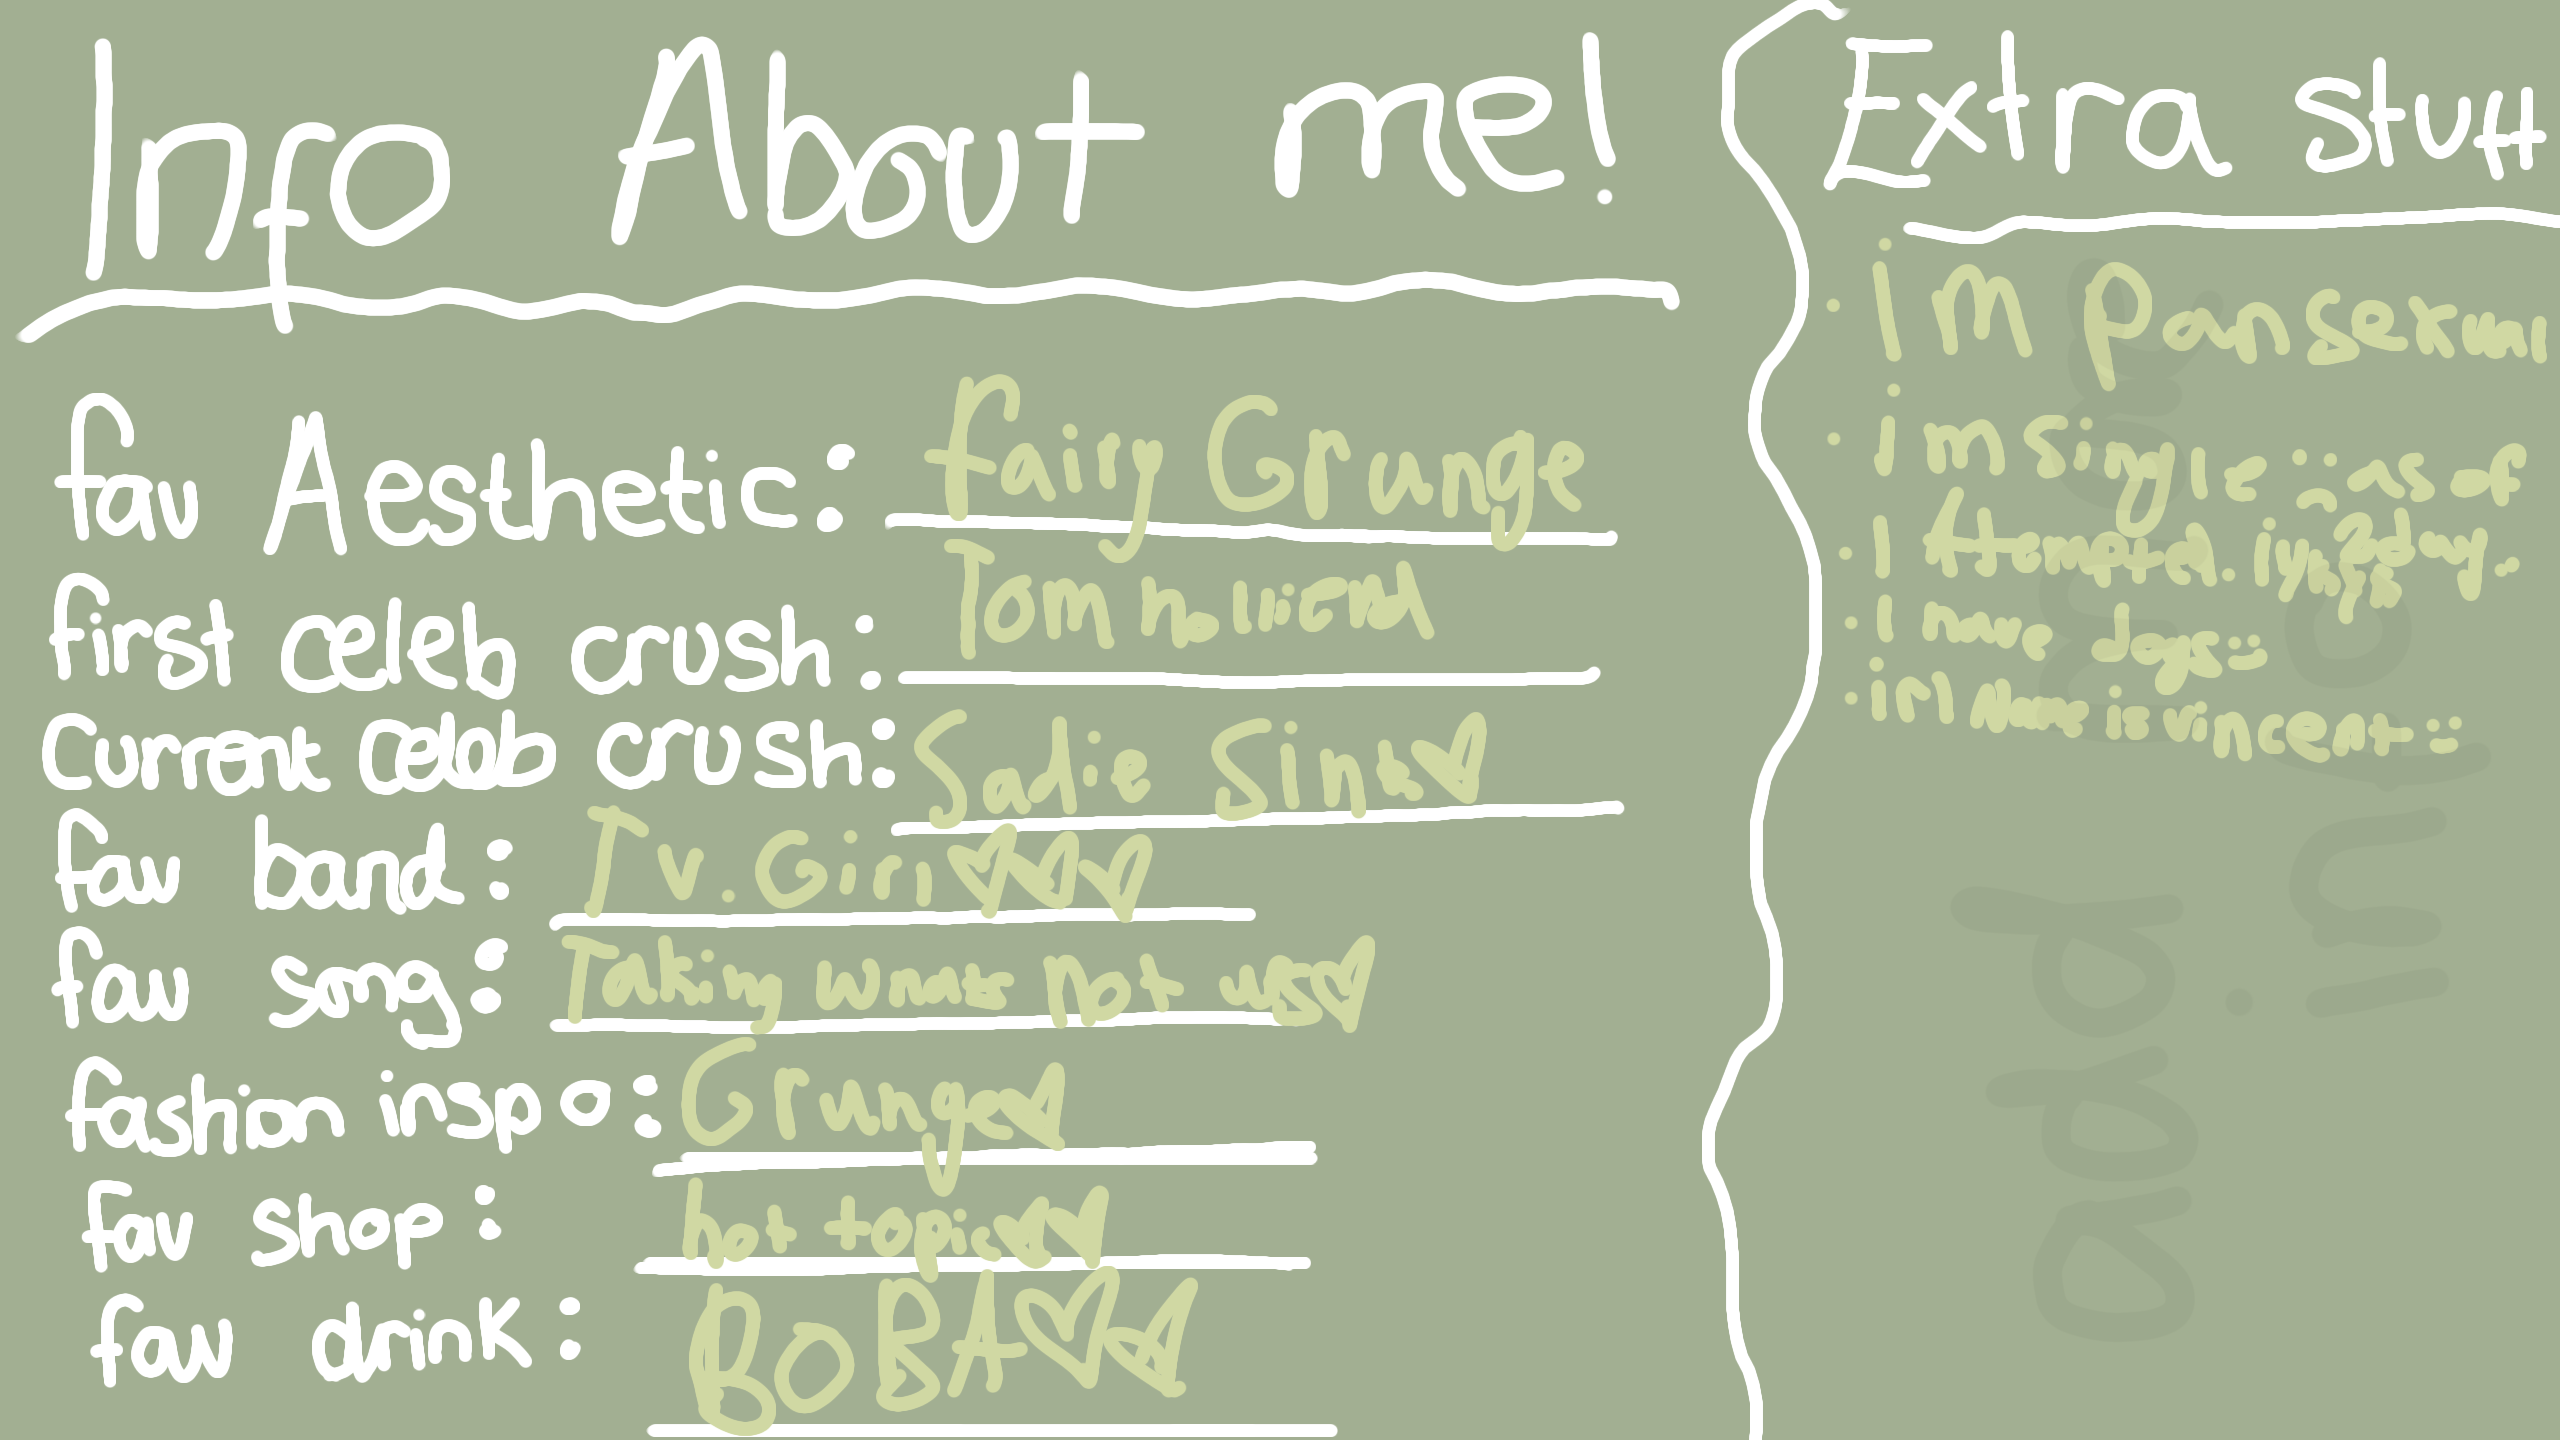 Info About me!
fav Aesthetic: fairy Grunge
first celeb crush: Tom holliend
Current Celeb crush: Sadie Sink
fav band: Tv. Girl
fav song: Taking whats not urs
fashion inspo: Grunge
fav shop: hot topic
fav drink: BOBA
Extra stuff
im pansexual
im single as of
I Attempted. 2day.
I have dogs
irl Name is vincent
add
info